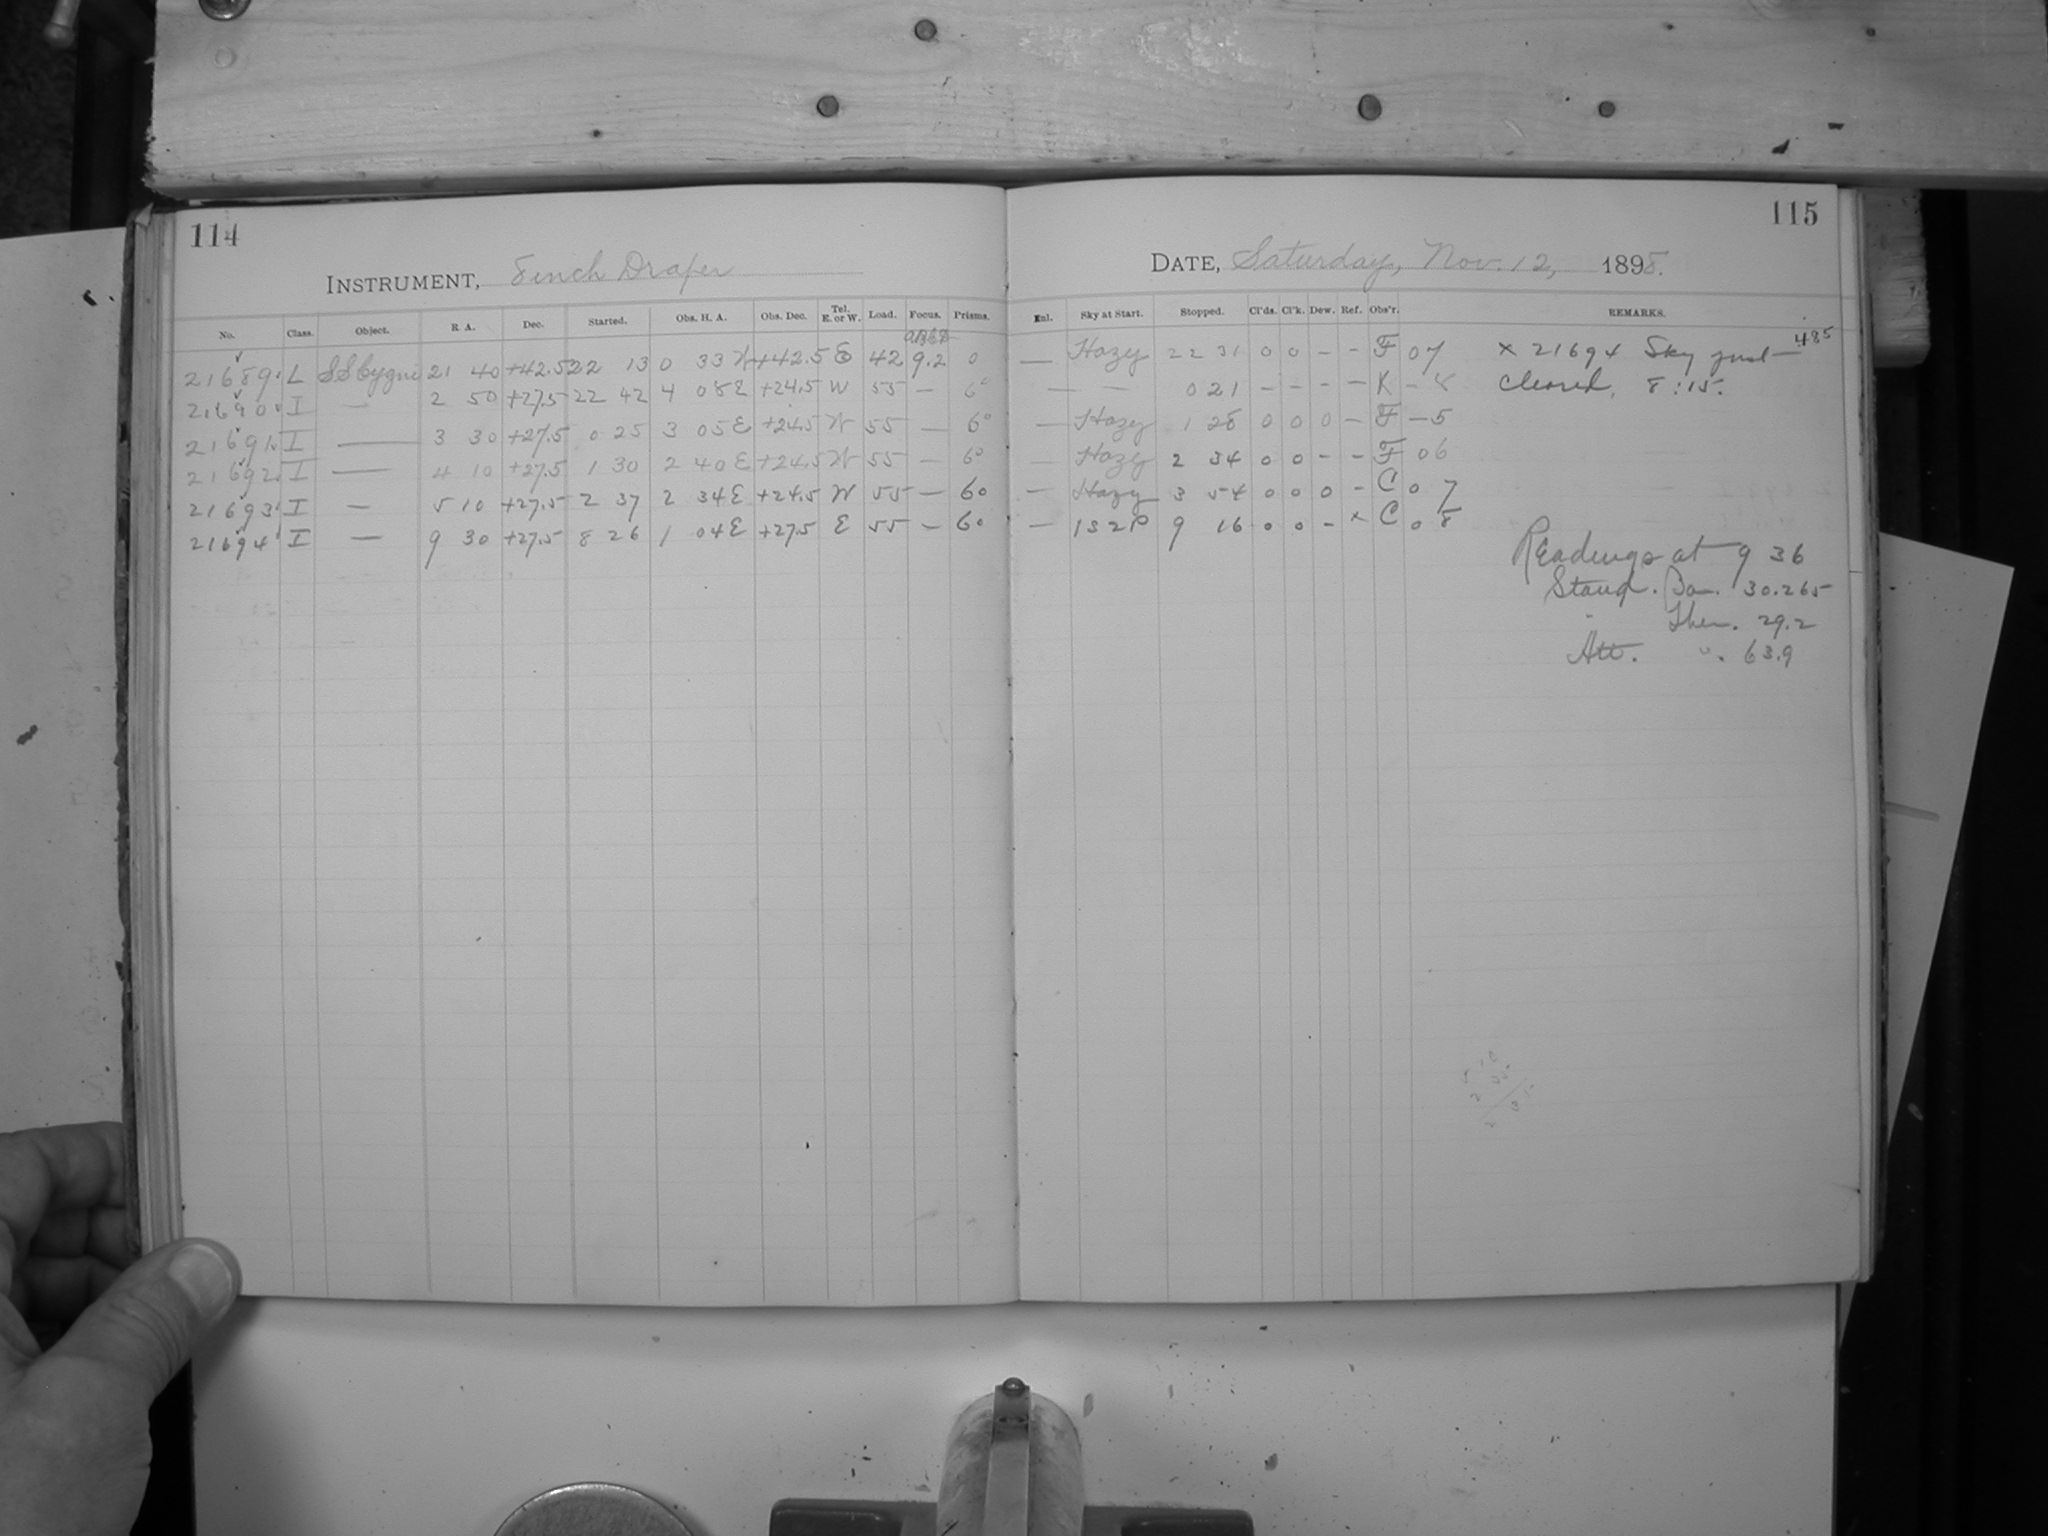 114
INSTRUMENT, 8 inch Draper
No. Class. Object. R. A. Dec. Started. Obs. H. A. Obs. Dec. Tel. E. or W. Load. Focus. Prisms.
21689 L SS Cygni 21 40 +42.5 22 13 0 33 W +42.5 E 42 9.2 0
21690 I — 2 50 +27.5 22 42 4 08 E +24.5 W 55 — 6°
21691 I — 3 30 +27.5 0 25 3 05 E +24.5 W 55 — 6°
21692 I — 4 10 +27.5 1 30 2 40 E +24.5 W 55 — 6°
21693 I — 5 10 +27.5 2 37 2 34 E +24.5 W 55 — 60
21694 I — 9 30 +27.5 8 26 1 04 E +27.5 E 55 — 60
115
DATE, Saturday, Nov. 12, 1898.
Enl. Sky at Start. Stopped. Cl'ds. Cl'k. Dew. Ref. Obs'r. REMARKS.
— Hazy 22 31 0 0 - - F 07 x 21694 Sky just 485
— — 0 21 - - - - K - 8 cleared, 8:15.
— Hazy 1 28 0 0 0 - F - 5
— Hazy 2 34 0 0 - - F 06
— Hazy 3 54 0 0 0 - C 0 7
— 1S2P 9 16 0 0 - x C 0 8
Readings at 9 36
Stand. Ba. 30.265
" Ther. 29.2
Att. ". 63.9